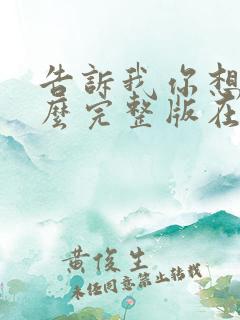 告訴我你想
麼完整版在
黃俊生
未經同意禁止轉載